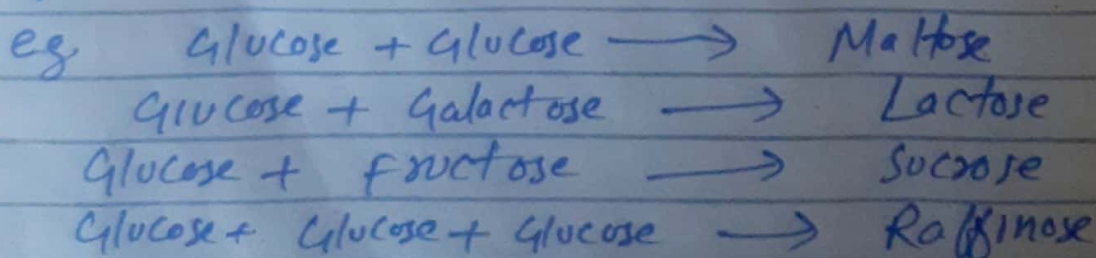 eg Glucose + Glucose → Maltose
Glucose + Galactose → Lactose
Glucose + fructose → Sucrose
Glucose + Glucose + Glucose → Raffinose